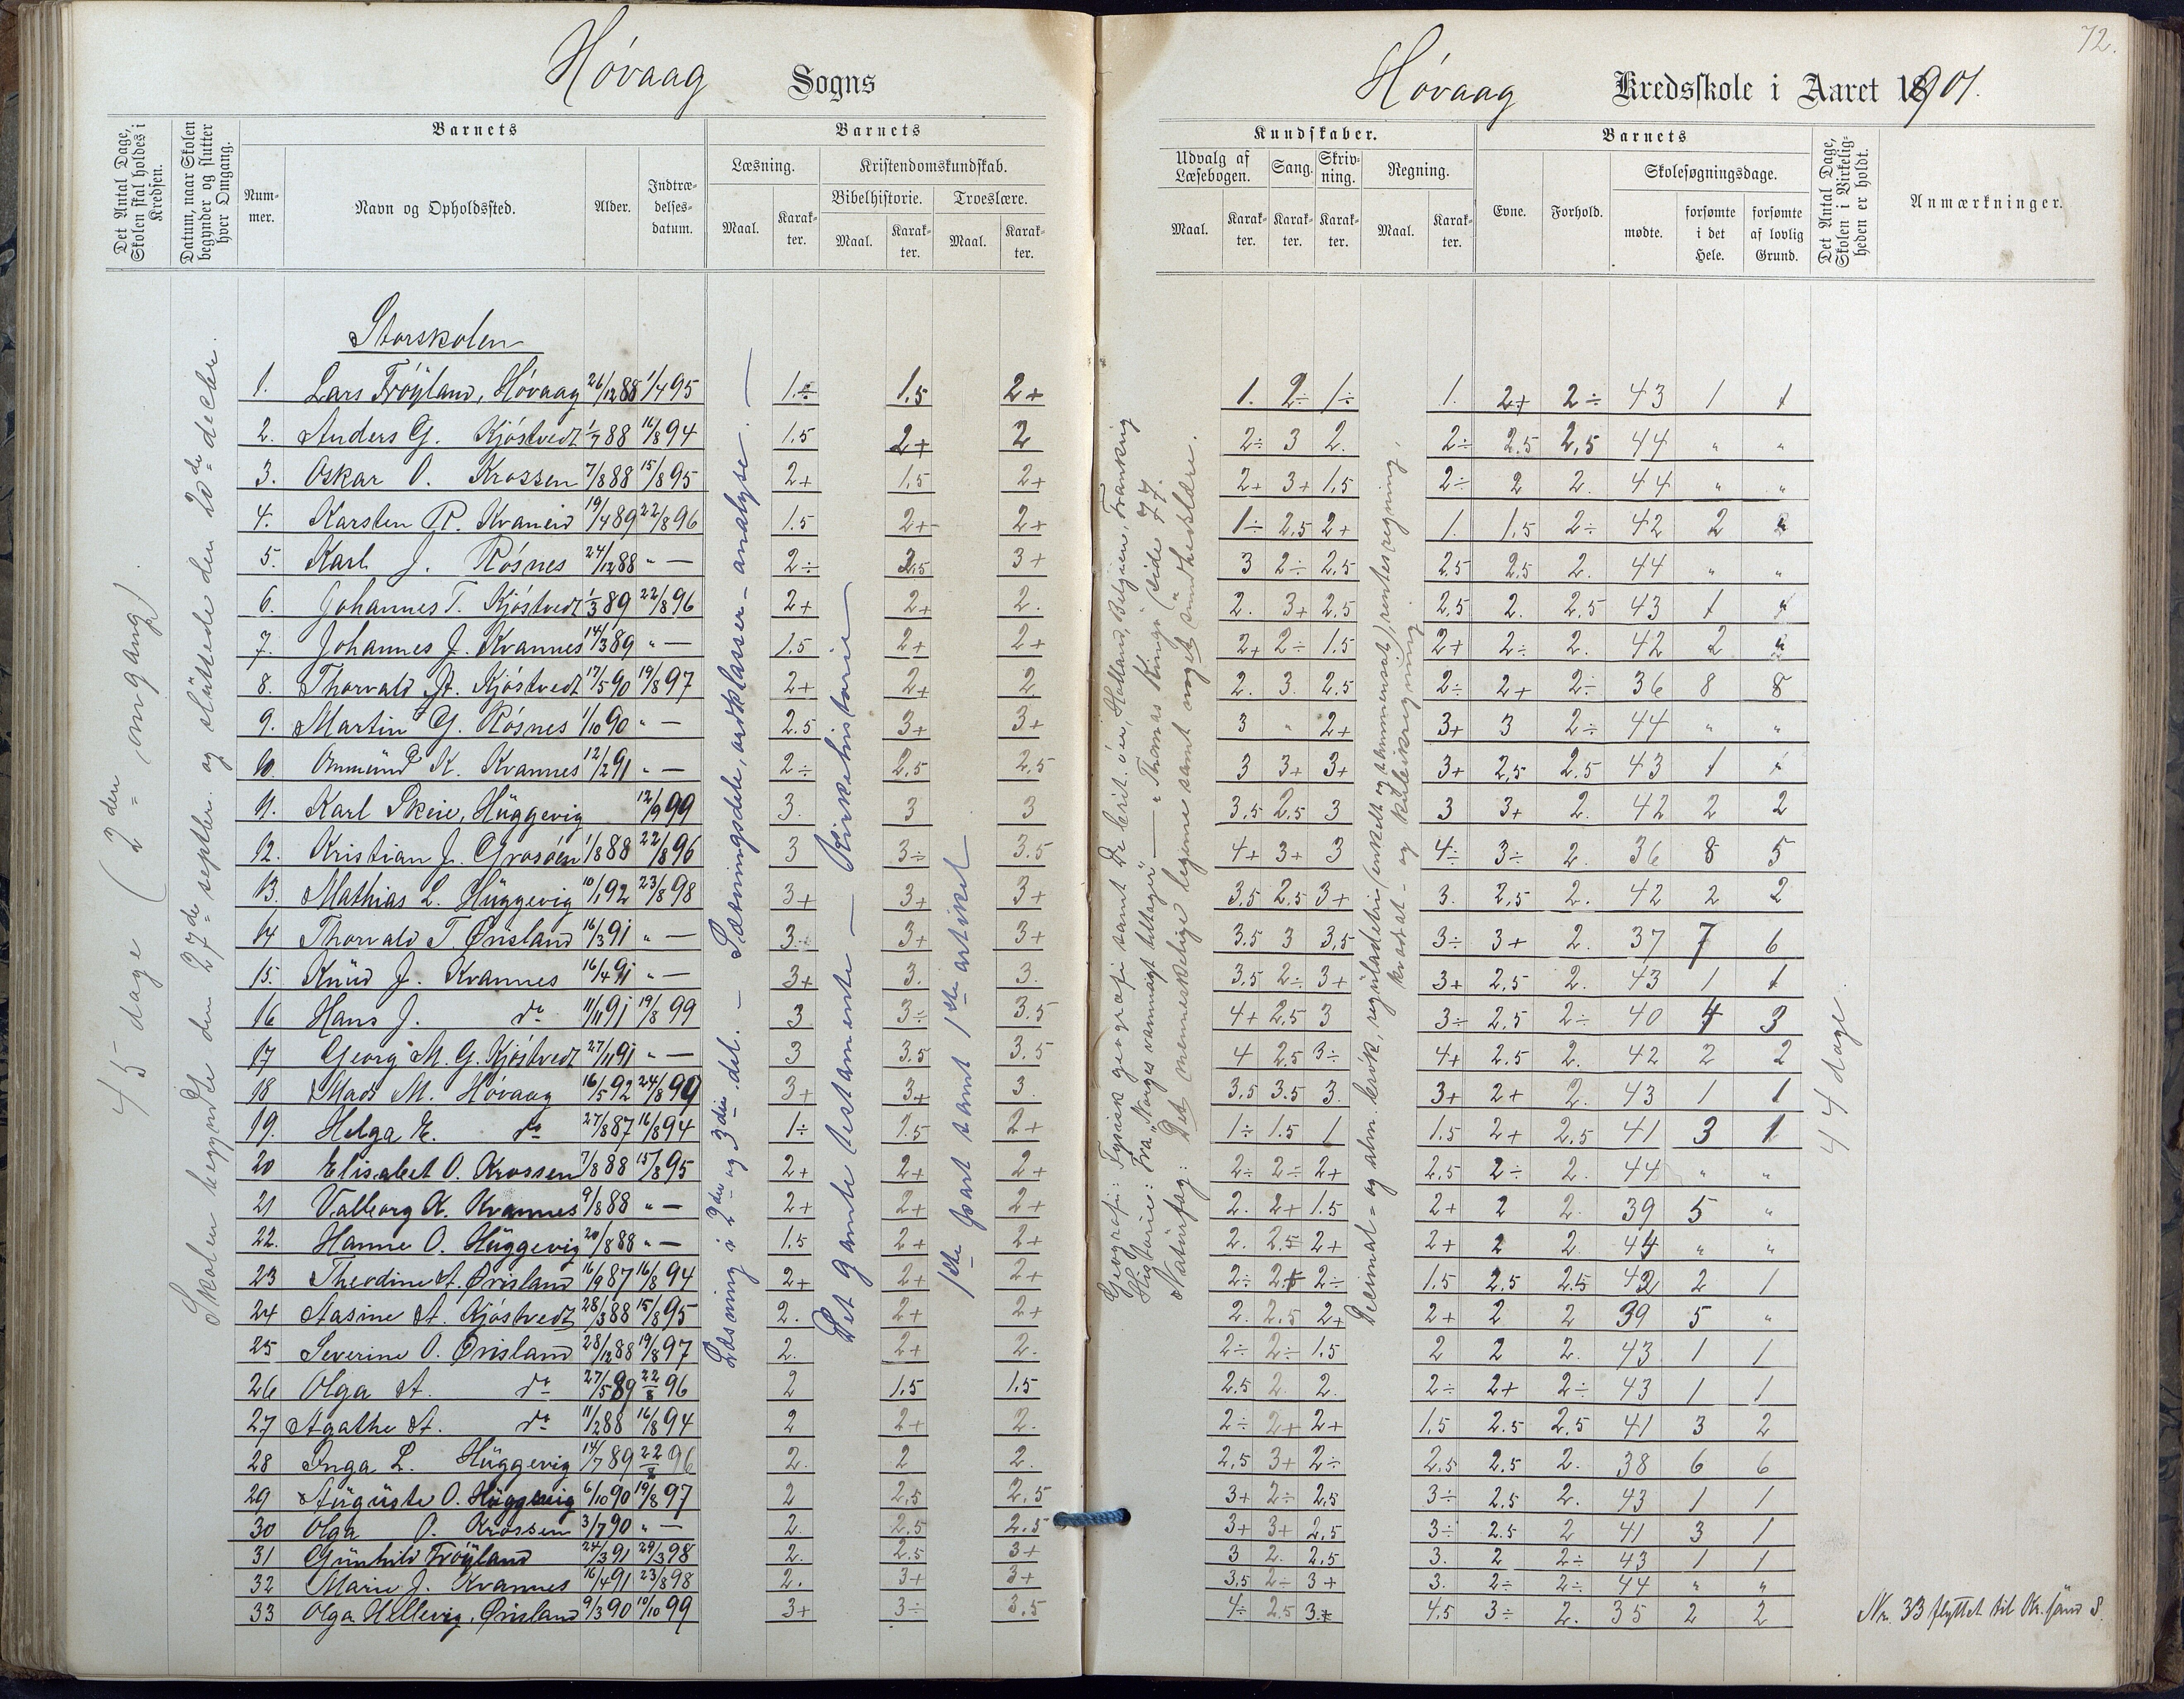 72.
Høvaag Sogns
Høvaag Kredsskole i Aaret 1901.
Det Antal Dage, Skolen skal holdes i Kredsen.
Datum, naar Skolen begynder og slutter hver Omgang.
Barnets
Nummer.
Navn og Opholdssted.
Alder.
Indtrædelsesdatum.
Barnets
Læsning.
Maal.
Karakter.
Kristendomskundskab.
Bibelhistorie.
Maal.
Karakter.
Troeslære.
Maal.
Karakter.
Kundskaber.
Udvalg af Læsebogen.
Maal.
Karakter.
Sang.
Karakter.
Skrivning.
Karakter.
Regning.
Maal.
Karakter.
Barnets
Evne.
Forhold.
Skolesøgningsdage.
mødte.
forsømte i det Hele.
forsømte af lovlig Grund.
Det Antal Dage, Skolen i Virkeligheden er holdt.
Anmærkninger.
45 dage (2den omgang).
Skolen begyndte den 27de septbr. og sluttede den 20de decbr.
Læsning i 2den og 3die del. – Sætningsdele, ordklasser – analyse. –
Det gamle testamente – Kirkehistorie
1ste part samt 1ste artikel
Geografi: Fysisk geografi samt De brit. øer, Holland, Belgien, Frankrig
Historie: Fra "Norges vanmagt tiltager" – "Thomas Kingo" (side 77.
Naturfag: Det menneskelige legeme samt noget sundhedslære.
Decimal- og alm. brøk, reguladetri (enkelt og sammensat), rentesregning, kvadrat- og kubikregning.
44 dage.
Storskolen
1. Lars Frøyland, Høvaag 26/12 88 1/4 95 1.÷ 1.5 2+ 1. 2÷ 1÷ 1. 2+ 2÷ 43 1 1
2. Anders G. Kjøstvedt 1/7 88 16/8 94 1.5 2+ 2 2÷ 3 2. 2÷ 2.5 2,5 44 " "
3. Oskar O. Krossen 7/8 88 15/8 95 2+ 1,5 2+ 2+ 3+ 1,5 2÷ 2 2. 44 " "
4. Karsten R. Kvaneid 19/4 89 22/8 96 1.5 2+ 2+ 1÷ 2.5 2+ 1. 1,5 2÷ 42 2 "
5. Karl J. Røsnes 24/12 88 " — 2÷ 2,5 3+ 3 2÷ 2,5 2.5 2.5 2. 44 " "
6. Johannes T. Kjøstvedt 1/3 89 22/8 96 2+ 2+ 2. 2. 3+ 2,5 2,5 2. 2,5 43 1 1
7. Johannes J. Kvannes 14/3 89 " — 1.5 2+ 2+ 2+ 2÷ 1.5 2+ 2÷ 2. 42 2 2
8. Thorvald A. Kjøstvedt 17/5 90 19/8 97 2+ 2+ 2 2. 3. 2.5 2÷ 2+ 2÷ 36 8 8
9. Martin G. Røsnes 1/10 90 " — 2.5 3+ 3+ 3 " 2+ 3+ 3 2÷ 44 " "
10. Ommund K. Kvannes 12/2 91 " — 2÷ 2,5 2,5 3 3+ 3+ 3+ 2,5 2.5 43 1 1
11. Karl Skeie, Huggevig 12/9 99 3. 3 3 3,5 2,5 3 3 3+ 2. 42 2 2
12. Kristian J. Grosøen 1/8 88 22/8 96 3 3÷ 3.5 4+ 3+ 3 4÷ 3÷ 2. 36 8 5
13. Mathias L. Huggevig 10/1 92 23/8 98 3+ 3+ 3+ 3,5 2,5 3+ 3. 2,5 2. 42 2 2
14 Thorvald T. Ørisland 16/3 91 " — 3. 3+ 3+ 3.5 3 3,5 3÷ 3+ 2. 37 7 6
15. Knud J. Kvannes 16/4 91 " — 3+ 3. 3. 3,5 2÷ 3+ 3+ 2,5 2. 43 1 1
16 Hans J. do 11/11 91 19/8 99 3 3÷ 3.5 4+ 2,5 3 3÷ 2,5 2÷ 40 4 3
17 Georg M. G. Kjøstvedt 27/11 91 " — 3 3.5 3.5 4 2.5 3÷ 4+ 2.5 2. 42 2 2
18 Mads M. Høvaag 16/5 92 24/8 99 3+ 3+ 3. 3,5 3.5 3. 3+ 2+ 2. 43 1 1
19. Helga E. do 27/8 87 16/8 94 1÷ 1.5 2+ 1÷ 1.5 1 1.5 2+ 2,5 41 3 1
20 Elisabet O. Krossen 7/8 88 15/8 95 2+ 2+ 2+ 2÷ 2÷ 2+ 2,5 2÷ 2. 44 " "
21 Valborg K. Kvannes 9/8 88 " — 2+ 2+ 2+ 2. 2+ 1.5 2+ 2 2. 39 5 "
22. Hanne O. Huggevig 20/8 88 " — 1.5 2+ 2+ 2. 2.5 2+ 2+ 2 2. 44 " "
23 Theodine A. Ørisland 16/9 87 16/8 94 2+ 2+ 2+ 2÷ 2+ 2÷ 1.5 2.5 2.5 42 2 1
24 Aasine A. Kjøstvedt 28/3 88 15/8 95 2. 2+ 2+ 2. 2.5 2+ 2+ 2 2 39 5 "
25 Severine O. Ørisland 28/12 88 19/8 97 2. 2+ 2. 2÷ 2÷ 1.5 2 2 2. 43 1 1
26 Olga A. do 27/5 89 22/8 96 2 1.5 1.5 2.5 2. 2. 2÷ 2+ 2÷ 43 1 1
27 Agathe A. do 11/2 88 16/8 94 2 2+ 2. 2÷ 2+ 2+ 1,5 2.5 2,5 41 3 2
28 Inga L. Huggevig 14/7 89 22/8 96 2. 2 2. 2,5 3+ 2÷ 2.5 2.5 2. 38 6 6
29 Auguste O. Huggevig 6/10 90 19/8 97 2 2,5 2,5 3+ 2÷ 2,5 3÷ 2.5 2. 43 1 1
30 Olga O. Krossen 3/7 90 " — 2. 2.5 2.5 3+ 3+ 2,5 3÷ 2.5 2 41 3 1
31 Gunhild Frøyland 24/3 91 29/3 98 2. 2.5 3+ 3 2. 2,5 3. 2 2÷ 43 1 1
32 Marie J. Kvannes 16/4 91 23/8 98 2. 3+ 3+ 3,5 2÷ 3+ 3. 2÷ 2÷ 44 " "
33 Olga Hellevig, Ørisland 9/3 90 10/10 99 3+ 3÷ 3.5 4÷ 2.5 3+ 4.5 3÷ 2. 35 2 2
Nr. 33 flyttet til Kr.sand S.